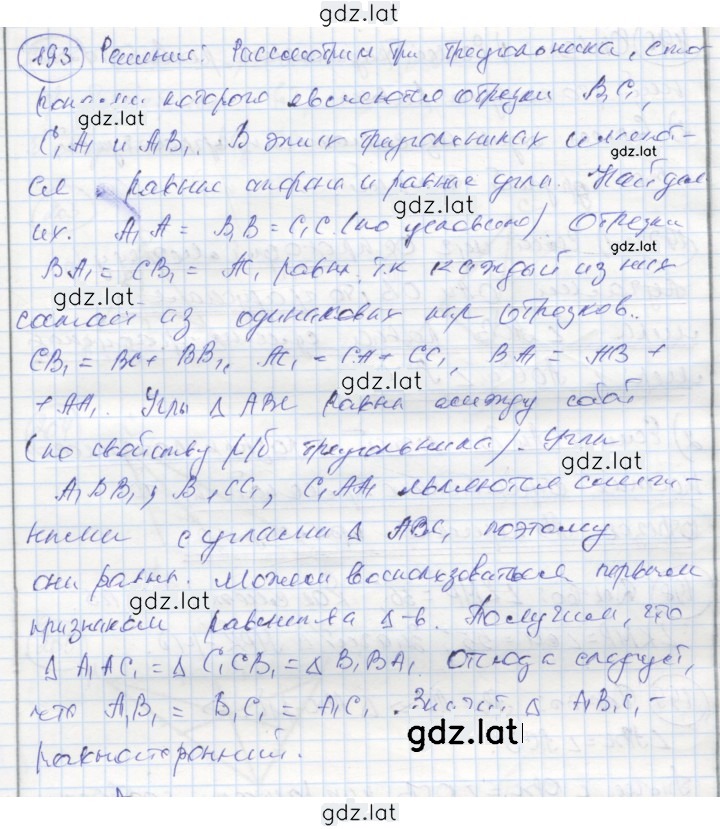 gdz.lat
193 Решение: Рассмотрим три треугольника, сто
ронами которого являются отрезки B₁C₁,
gdz.lat
C₁A₁ и A₁B₁. В этих треугольниках
gdz.lat
равные стороны и равные углы. Найдем
gdz.lat
их. A₁A = B₁B = C₁C. (по условию). Отрезки
BA₁ = CB₁ = AC₁ равны т.к каждой из них
gdz.lat
из одинаковых пар отрезков..
CB₁ = BC + BB₁, AC₁ = CA + CC₁, BA₁ = AB +
gdz.lat
+ AA₁. Углы Δ ABC равны между собой
(по свойству р/б треугольника). Углы
gdz.lat
A₁BB₁, B₁CC₁, C₁AA₁ являются смеж-
ными с углами Δ ABC, поэтому
они равны. Можем воспользоваться первым
gdz.lat
признаком равенства Δ-в. Получим, что
Δ A₁AC₁ = Δ C₁CB₁ = Δ B₁BA₁. Отсюда следует,
что A₁B₁ = B₁C₁ = A₁C₁. Значит, Δ A₁B₁C₁ -
gdz.lat
равносторонний.
gdz.lat